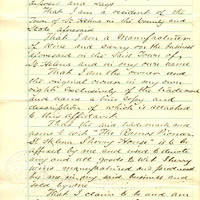 deposes and says
That I am a resident of the
Town of St Helena in the County and
State aforesaid
That I am a Manufacturer
of Wine and carry on the business
aforesaid in the said Town of
St Helena and in my own name
That I am the owner and
the original owner in my own
right exclusively of the trademark
and name a true copy and
description of which is attached
to this affidavit.
That the said trademark and
name to wit "The Pioneer
St Helena Sherry House" is to be
affixed by me and used to denote
any and all goods to wit Sherry
wine manufactured and produced
by me in my said business and
sold by me
That I claim to be and am